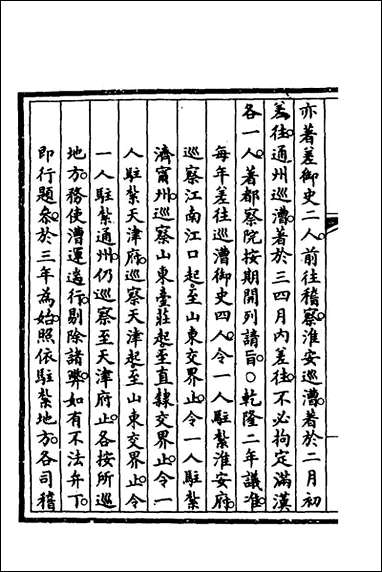 亦著差御史二人前往稽察淮安巡漕著於二月初
差往通州巡漕著於三四月內差往不必拘定滿漢
各一人著都察院按期開列請旨○乾隆二年議准
每年差往巡漕御史四人令一人駐紮淮安府
巡察江南江口起至山東交界止令一人駐紮
濟甯州巡察山東臺莊起至直隸交界止令一
人駐紮天津府巡察天津起至山東交界止令
一人駐紮通州仍巡察至天津府止各按所巡
地方務使漕運遄行剔除諸弊如有不法弁丁
即行題叅於三年為始照依駐紮地方各司稽